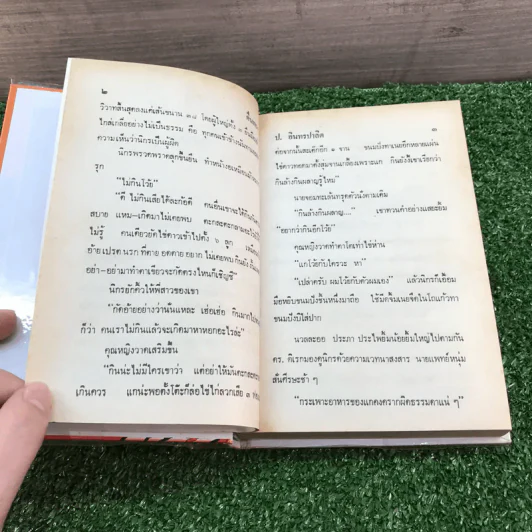 ๒
วิวาทสิ้นสุดลงแค่เส้นขนาน ๓๘ โดยผู้ใหญ่ทั้ง
ใกล่เกลี่ยอย่างไม่เป็นธรรม คือ ทุกคนเข้าข้าง
ความเห็นว่านิกรเป็นผู้ผิด
นิกรพรวดพราดลุกขึ้นยืน ทำหน้า
รุก
"ไม่กินโว้ย"
"ดี ไม่กินเสียได้ละก้อดี คนอื่นเขาจะได้กิน
สบาย แหม—เกิดมาไม่เคยพบ ตะกละตะกลาม
ไม่รู้ คนเดียวยัดไข่ดาวเข้าไปตั้ง ๖ ลูก
"กัดอ้ายอย่างว่านั่นแหละ เฮ่อเฮ้อ กินมาก
ก็ว่า คนเราไม่กินแล้วจะเกิดมาหาหอกอะไรล่ะ"
คุณหญิงวาดเสริมขึ้น
"กินน่ะไม่มีใครเขาว่า แต่อย่าให้มันตะกละ
เกินควร แกน่ะพอตั้งโต๊ะก็ล่อไข่ไก่ลวกเสีย ๓
ป. อินทรปาลิต
๓
ต่อจากนั้นสะเต๊กอีก ๑ จาน ขนมปังทาเนยอีกหลายแผ่น
กินล้างกินผลาญรู้ไหม"
นายจอมทะเล้นทรุดตัวนั่งตามเดิม
"กินล้างกินผลาญ..." เขาทวนคำอย่างแสยะยิ้ม
"อยากว่ากินอีกโว้ย"
คุณหญิงวาดทำตาโตเท่าไข่ห่าน
"แกโว้ยกับใครวะ หา"
"เปล่าครับ ผมโว้ยกับตัวผมเอง" แล้วนิกรก็เอื้อม
มือหยิบขนมปังชิ้นหนึ่งมาถือ ใช้มีดจิ้มเนยจืดในโถแก้วทา
ขนมปังปิ้งใส่ปาก
นวลละออ ประภา ประไพยิ้มน้อยยิ้มใหญ่ไปตามกัน
ดร. ดิเรกมองดูนิกรด้วยความเวทนาสงสาร นายแพทย์หนุ่ม
สั่นศีรษะช้า ๆ
"กระเพาะอาหารของแกคงครากผิดธรรมดาแน่ ๆ"